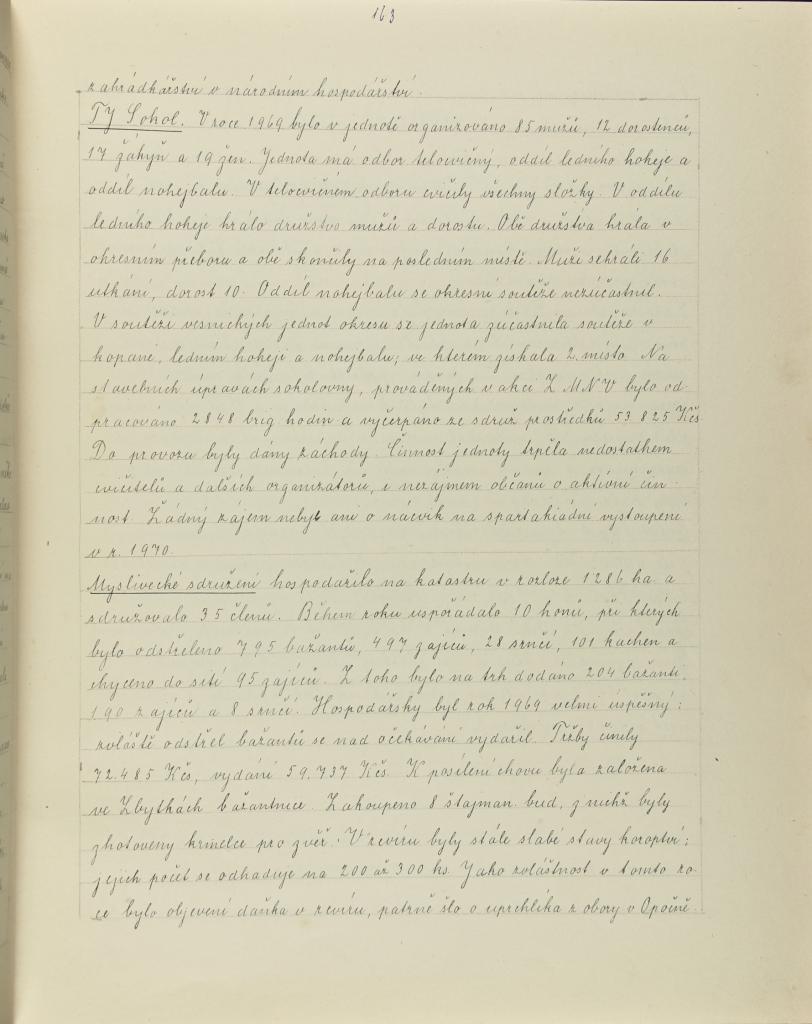 163
zahrádkářství v národním hospodářství.
TJ Sokol. V roce 1969 bylo v jednotě organizováno 85 mužů, 12 dorostenců,
17 žákyň a 19 žen. Jednota má odbor tělocvičný, oddíl ledního hokeje a
oddíl nohejbalu. V tělocvičném odboru cvičily všechny složky. V oddílu
ledního hokeje hrálo družstvo mužů a dorostu. Obě družstva hrála v
okresním přeboru a obě skončily na posledním místě. Muži sehráli 16
utkání, dorost 10. Oddíl nohejbalu se okresní soutěže nezúčastnil.
V soutěži vesnických jednot okresu se jednota zúčastnila soutěže v
kopané, ledním hokeji a nohejbalu, ve kterém získala 2. místo. Na
stavebních úpravách sokolovny, prováděných v akci Z MNV bylo od-
pracováno 2848 brig. hodin a vyčerpáno ze sdruž. prostředků 53.825 Kčs.
Do provozu byly dány záchody. Činnost jednoty trpěla nedostatkem
cvičitelů a dalších organizátorů, i nezájmem občanů o aktivní čin-
nost. Žádný zájem nebyl ani o nácvik na spartakiádní vystoupení
v r. 1970.
Myslivecké sdružení hospodařilo na katastru v rozloze 1286 ha. a
sdružovalo 35 členů. Během roku uspořádalo 10 honů, při kterých
bylo odstřeleno 795 bažantů, 497 zajíců, 28 srnčí, 101 kachen a
chyceno do sítí 95 zajíců. Z toho bylo na trh dodáno 204 bažantů,
190 zajíců a 8 srnčí. Hospodářsky byl rok 1969 velmi úspěšný;
zvláště odstřel bažantů se nad očekávání vydařil. Tržby činily
72.485 Kčs, vydání 59.737 Kčs. K posílení chovu byla založena
ve Zbytkách bažantnice. Zakoupeno 8 štajman. bud, z nichž byly
zhotoveny krmelce pro zvěř. V revíru byly stále slabé stavy koroptví;
jejich počet se odhaduje na 200 až 300 ks. Jako zvláštnost v tomto ro-
ce bylo objevení daňka v revíru, patrně šlo o uprchlíka z obory v Opočně.